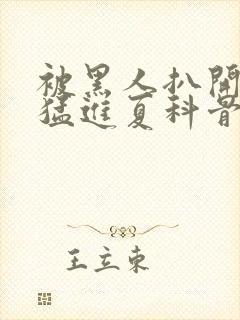 被黑人扒開
猛進夏科醫
王立東